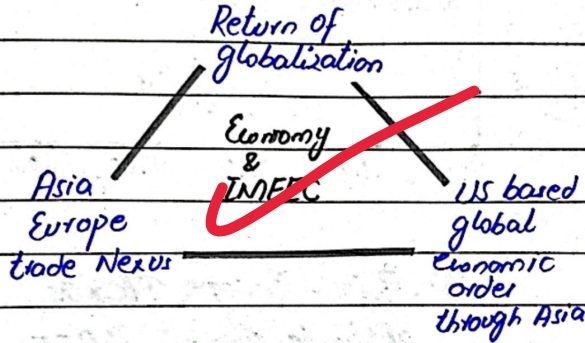 Return of
globalization
Economy
&
IMEEC
Asia
Europe
trade Nexus
US based
global
economic
order
through Asia